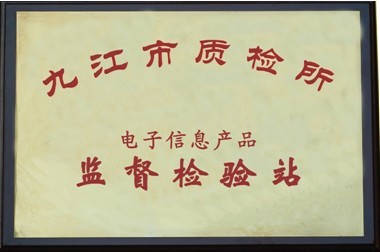 九江市质检所
电子信息产品
监督检验站